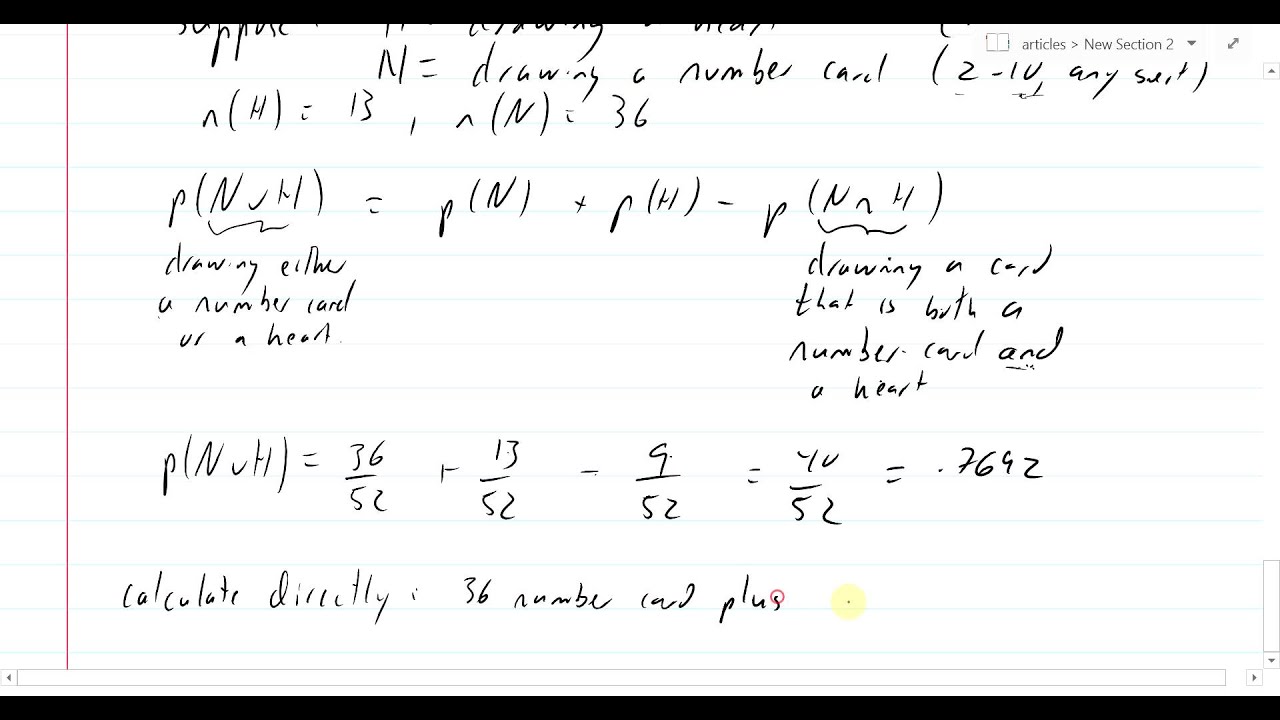 suppose : H = drawing a heart (
articles > New Section 2
N = drawing a number card (2-10, any suit)
n(H) = 13 , n(N) = 36
p(N∪H) = p(N) + p(H) - p(N∩H)
drawing either
a number card
or a heart.
drawing a card
that is both a
number card and
a heart
p(N∪H) = 36/52 + 13/52 - 9/52 = 40/52 = .7692
calculate directly : 36 number card plus